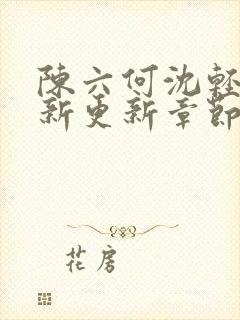 陳六何沈輕
新更新章節
花房